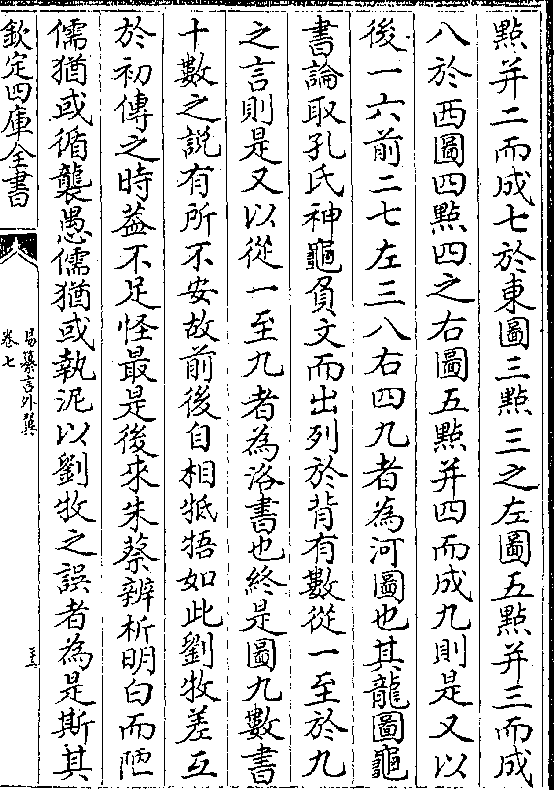 點并二而成七於東圖三點三之左圖五點并三而成
八於西圖四點四之右圖五點并四而成九則是又以
後一六前二七左三八右四九者為河圖也其龍圖龜
書論取孔氏神龜負文而出列於背有數從一至於九
之言則是又以從一至九者為洛書也終是圖九數書
十數之説有所不安故前後自相牴牾如此劉牧差互
於初傳之時葢不足怪最是後來朱蔡辨析明白而陋
儒猶或循襲愚儒猶或執泥以劉牧之誤者為是斯其
欽定四庫全書
易纂言外翼
卷七